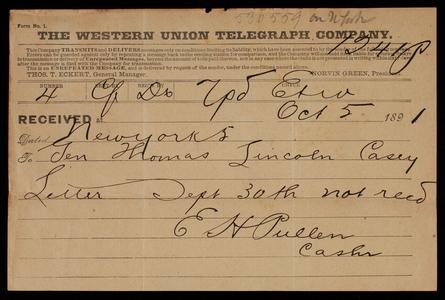 Form No. 1.
THE WESTERN UNION TELEGRAPH COMPANY.
This Company TRANSMITS and DELIVERS messages only on conditions limiting its liability, which have been assented to by
Errors can be guarded against only by repeating a message back to the sending station for comparison, and the Company will not hold itself liable for errors or delays
in transmission or delivery of Unrepeated Messages, beyond the amount of tolls paid thereon, nor in any case where the claim is not presented in writing within
after the message is filed with the Company for transmission.
This is an UNREPEATED MESSAGE, and is delivered by request of the sender, under the conditions named above.
THOS. T. ECKERT, General Manager. NORVIN GREEN, President.
NUMBER
4
Oct 5 1891
RECEIVED at
Dated New York 5
To Gen Thomas Lincoln Casey
Letter Sept 30th not recd
E H Pullen
Cashr